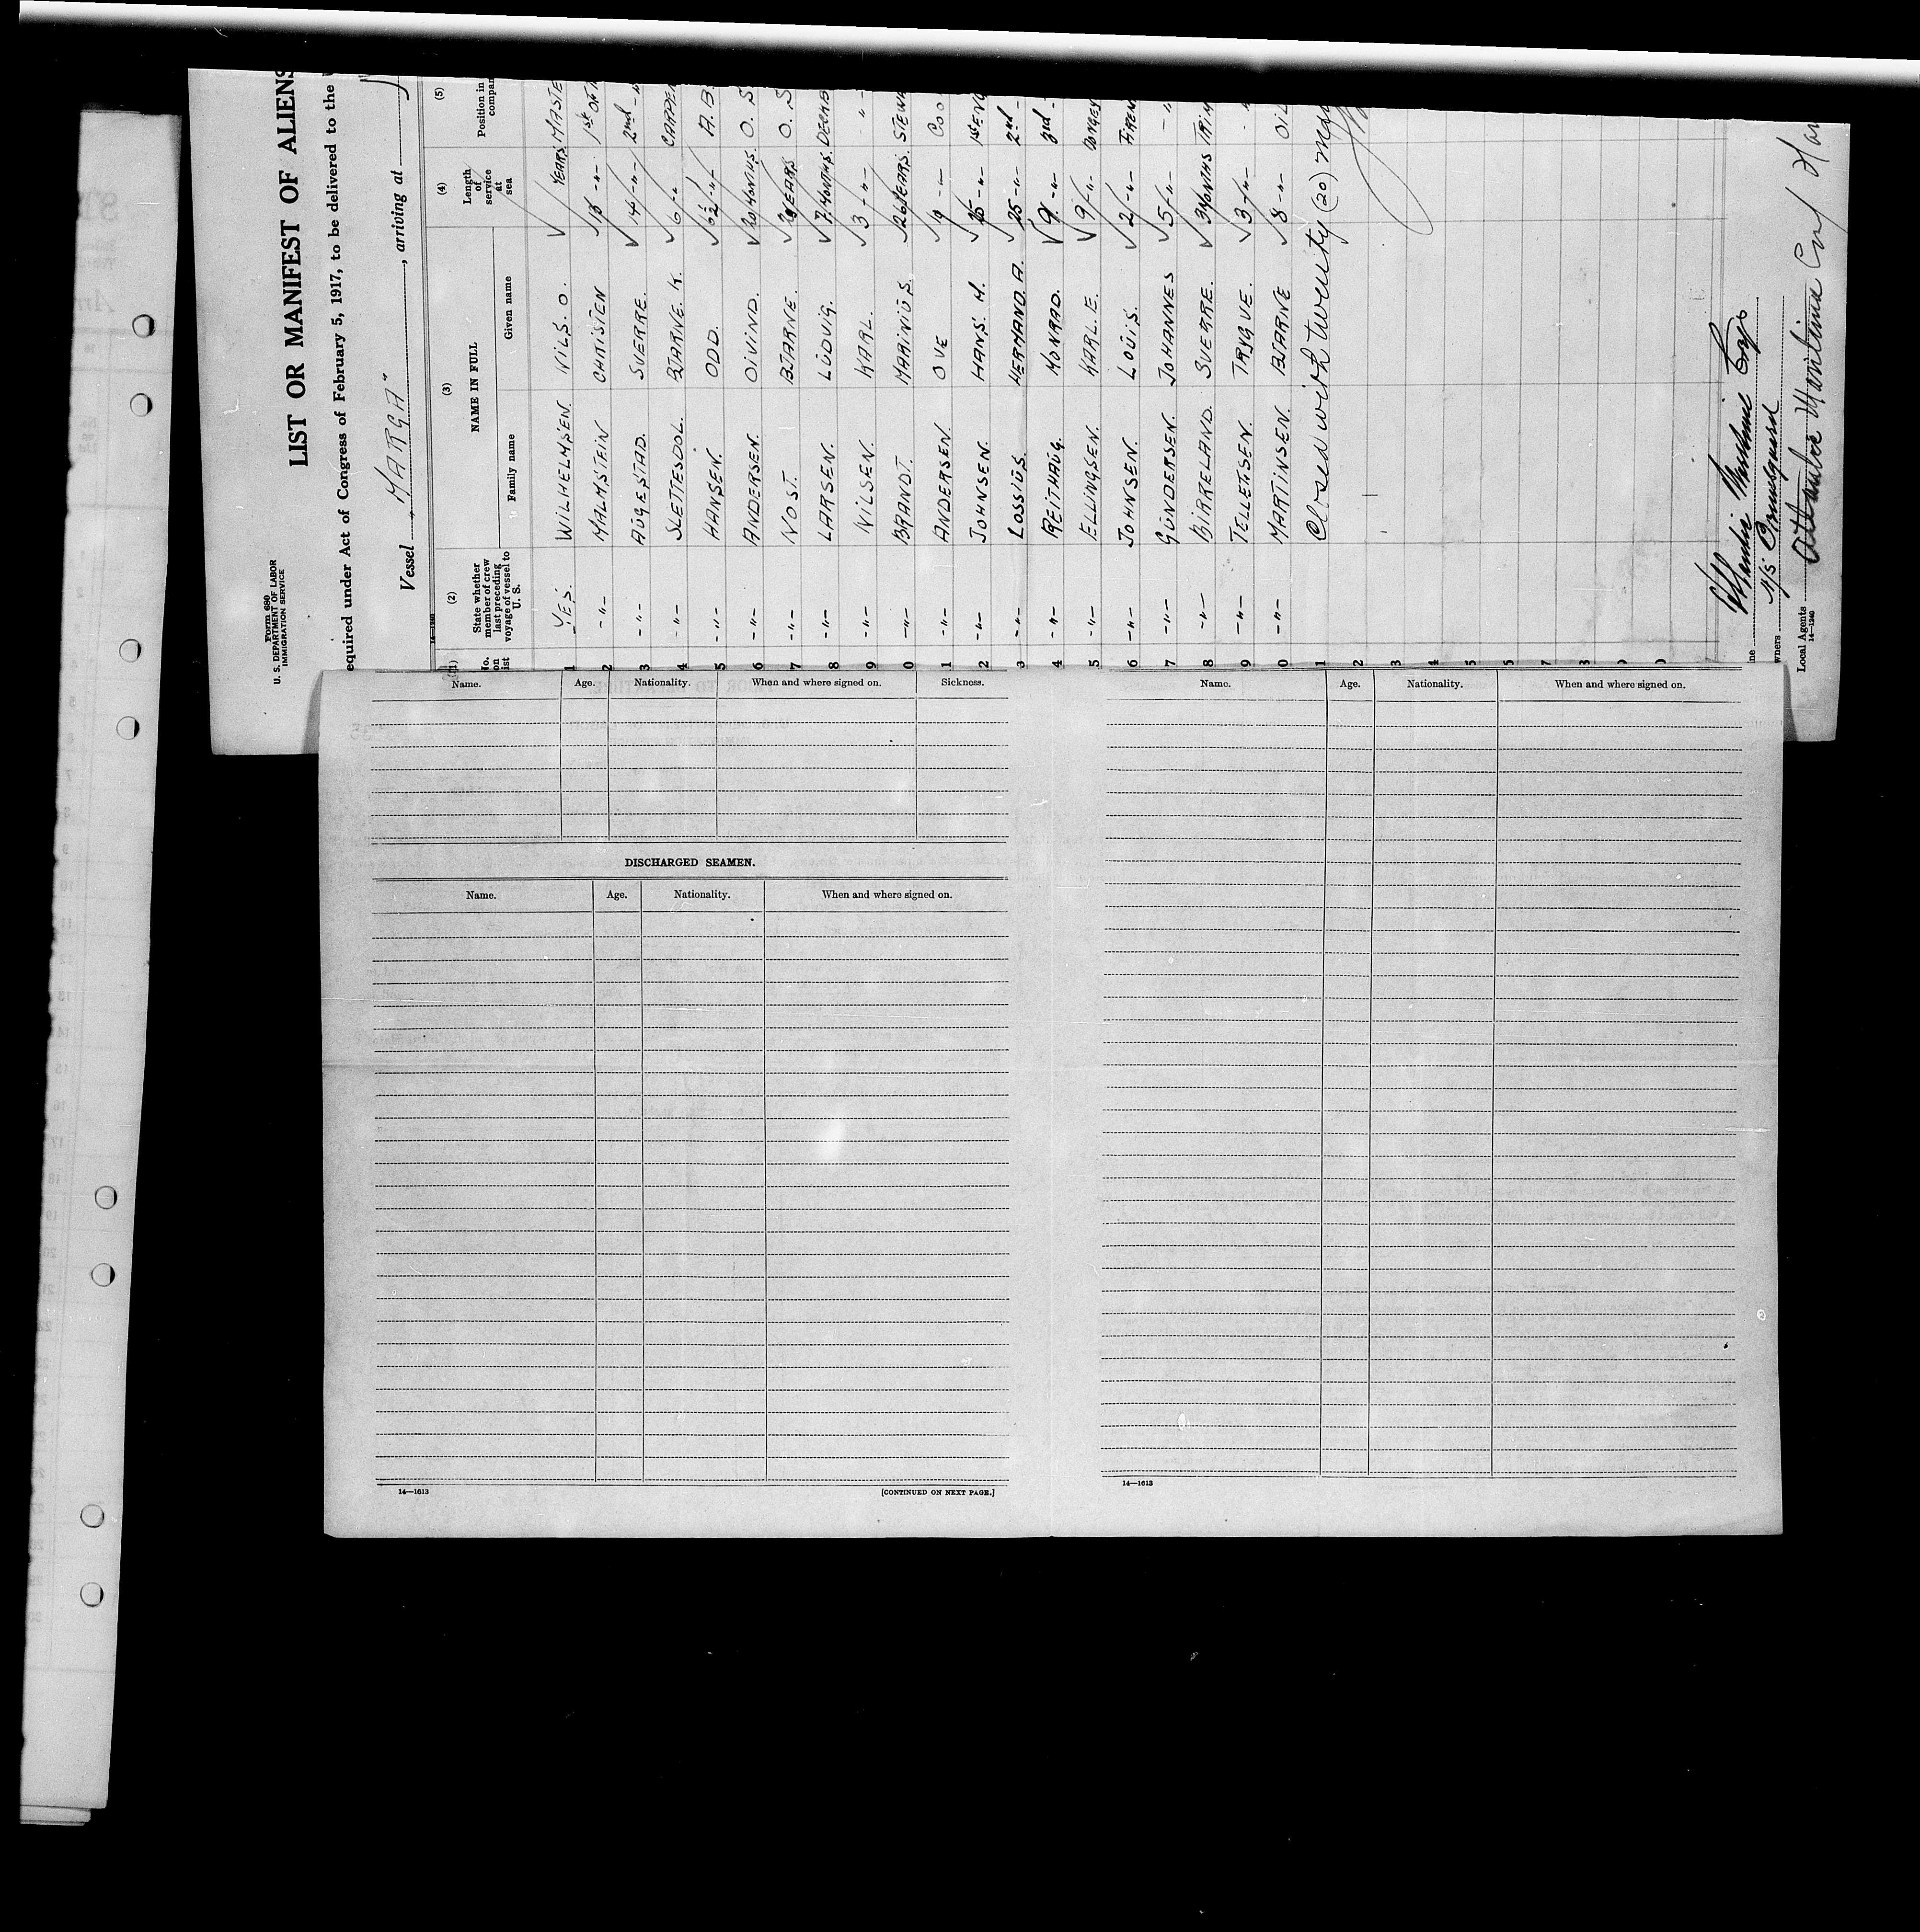 Form 680
U. S. DEPARTMENT OF LABOR
IMMIGRATION SERVICE
LIST OR MANIFEST OF ALIENS
equired under Act of Congress of February 5, 1917, to be delivered to the
Vessel "MARGA" , arriving at
(1) (2) (3) (4) (5)
No. on ist State whether member of crew last preceding voyage of vessel to U. S. NAME IN FULL Length of service at sea Position in compan
Family name Given name
1 YES. WILHELMSEN. NILS. O. YEARS MASTE
2 -"- MALMSTEIN CHRISTEN -"- 1st OFF
3 -"- AUGESTAD. SVERRE. 14 -"- 2nd -"-
4 -"- SLETTESDOL. BJARNE. K. 6 -"- CARPEN
5 -"- HANSEN. ODD. -"- A.B.
6 -"- ANDERSEN. OIVIND. 20 MONTHS. O. S
7 -"- NOST. BJARNE. YEARS O. S
8 -"- LARSEN. LUDVIG. 7 MONTHS. DECKB
9 -"- NILSEN. KARL. 3 -"- -"-
0 -"- BRANDT. MARINIUS. 26 YEARS. STEWA
1 -"- ANDERSEN. OVE 9 -"- COO
2 -"- JOHNSEN. HANS. M. 25 -"- 1st ENG
3 -"- LOSSIUS. HERMAND. A. 25 -"- 2nd -
4 -"- REITHAUG. KONRAD. 9 -"- 3rd -
5 -"- ELLINGSEN. KARL. E. 9 -"- DONKEY
6 -"- JOHNSEN. LOUIS. 2 -"- FIREM
7 -"- GUNDERSEN. JOHANNES 5 -"- -"-
8 -"- BIRKELAND. SVERRE. 3 MONTHS TRIM
9 -"- TELLEFSEN. TRYGVE. 3 -"- -"-
0 -"- MARTINSEN. BJARNE 8 -"- OIL
1 Closed with twenty (20)
2
3
4
5
5
7
3
Local Agents Maritime Corp
14—1240
Name. Age. Nationality. When and where signed on. Sickness.
DISCHARGED SEAMEN.
Name. Age. Nationality. When and where signed on.
14—1613 [CONTINUED ON NEXT PAGE.]
Name. Age. Nationality. When and where signed on.
14—1613